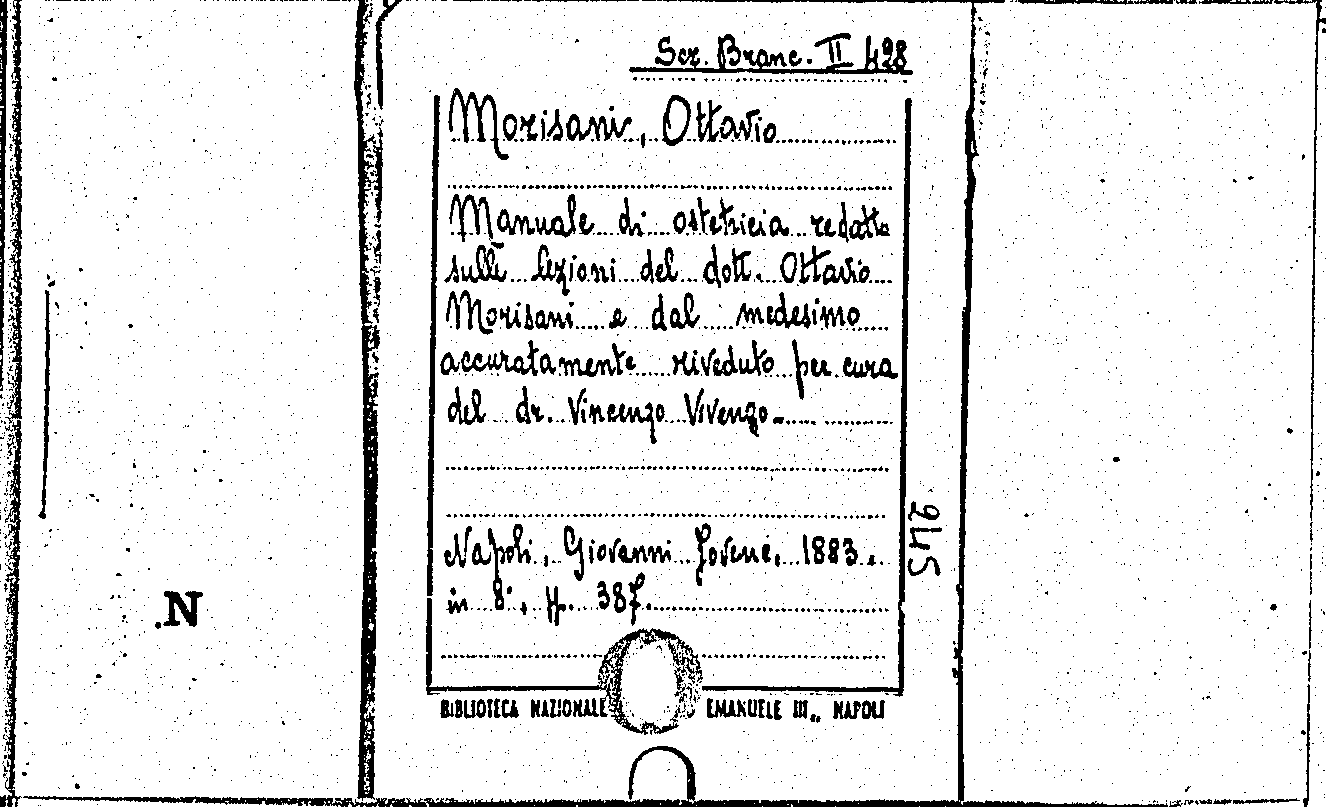 Scr. Branc. II 428
Morisani, Ottavio
Manuale di ostetricia redatto
sulle lezioni del dott. Ottavio
Morisani e dal medesimo
accuratamente riveduto per cura
del dr. Vincenzo Vivenzo.
Napoli, Giovanni Jovene, 1883.
in 8°, pp. 387.
BIBLIOTECA NAZIONALE EMANUELE III„ NAPOLI
245
.N